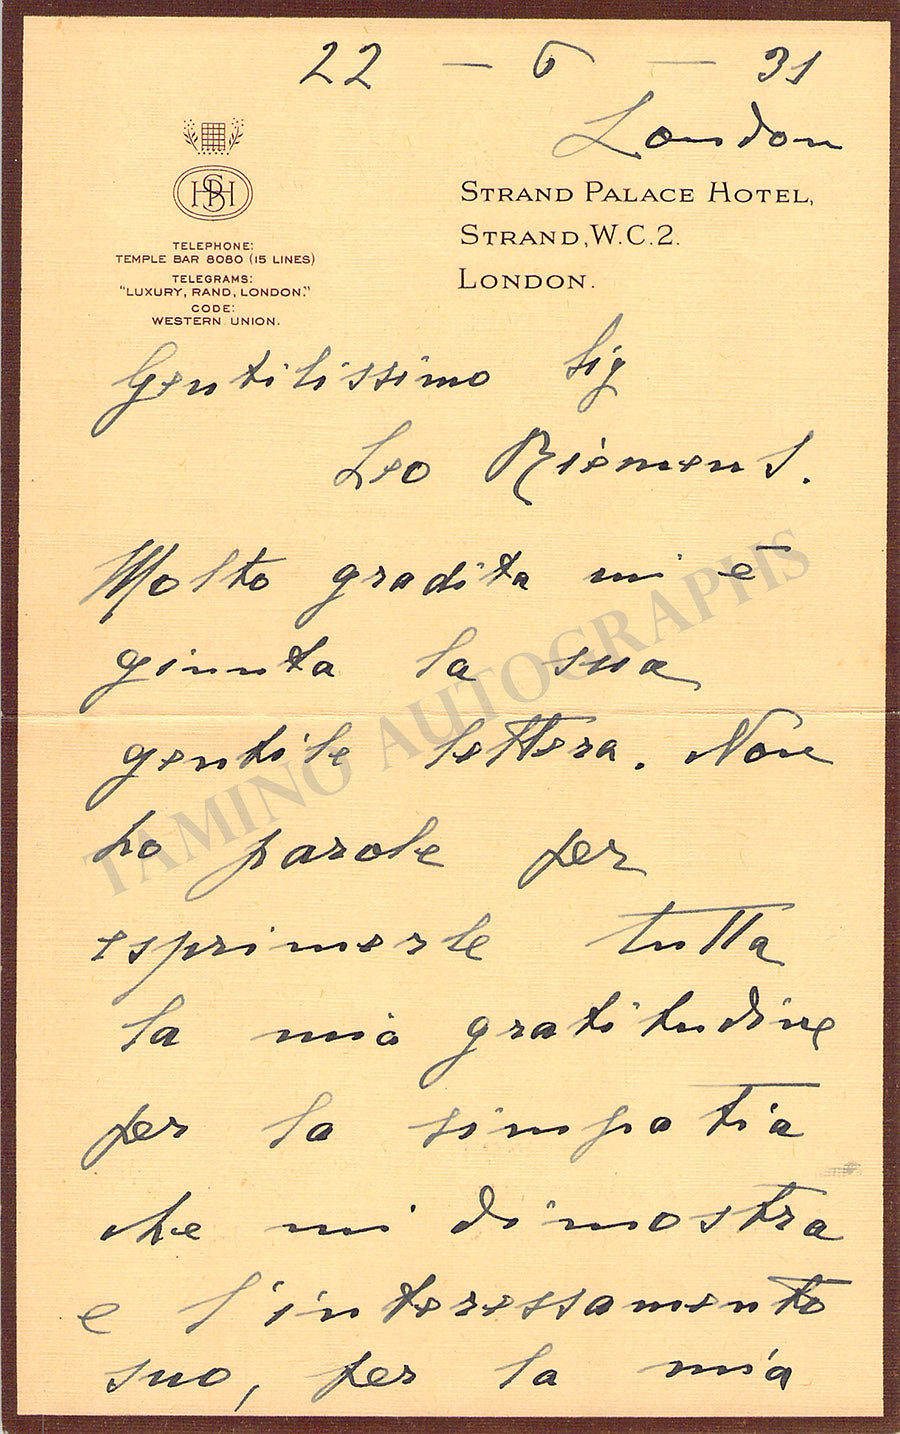 22 — 6 — 31
London
HSH
TELEPHONE:
TEMPLE BAR 8080 (15 LINES)
TELEGRAMS:
"LUXURY, RAND, LONDON."
CODE:
WESTERN UNION.
STRAND PALACE HOTEL,
STRAND, W.C.2.
LONDON.
Gentilissimo Sig
Leo Riemens.
Molto gradita mi è
giunta la sua
gentile lettera. Non
ho parole per
esprimerle tutta
la mia gratitudine
per la simpatia
che mi dimostra
e l'interessamento
suo, per la mia
TAMINO AUTOGRAPHS